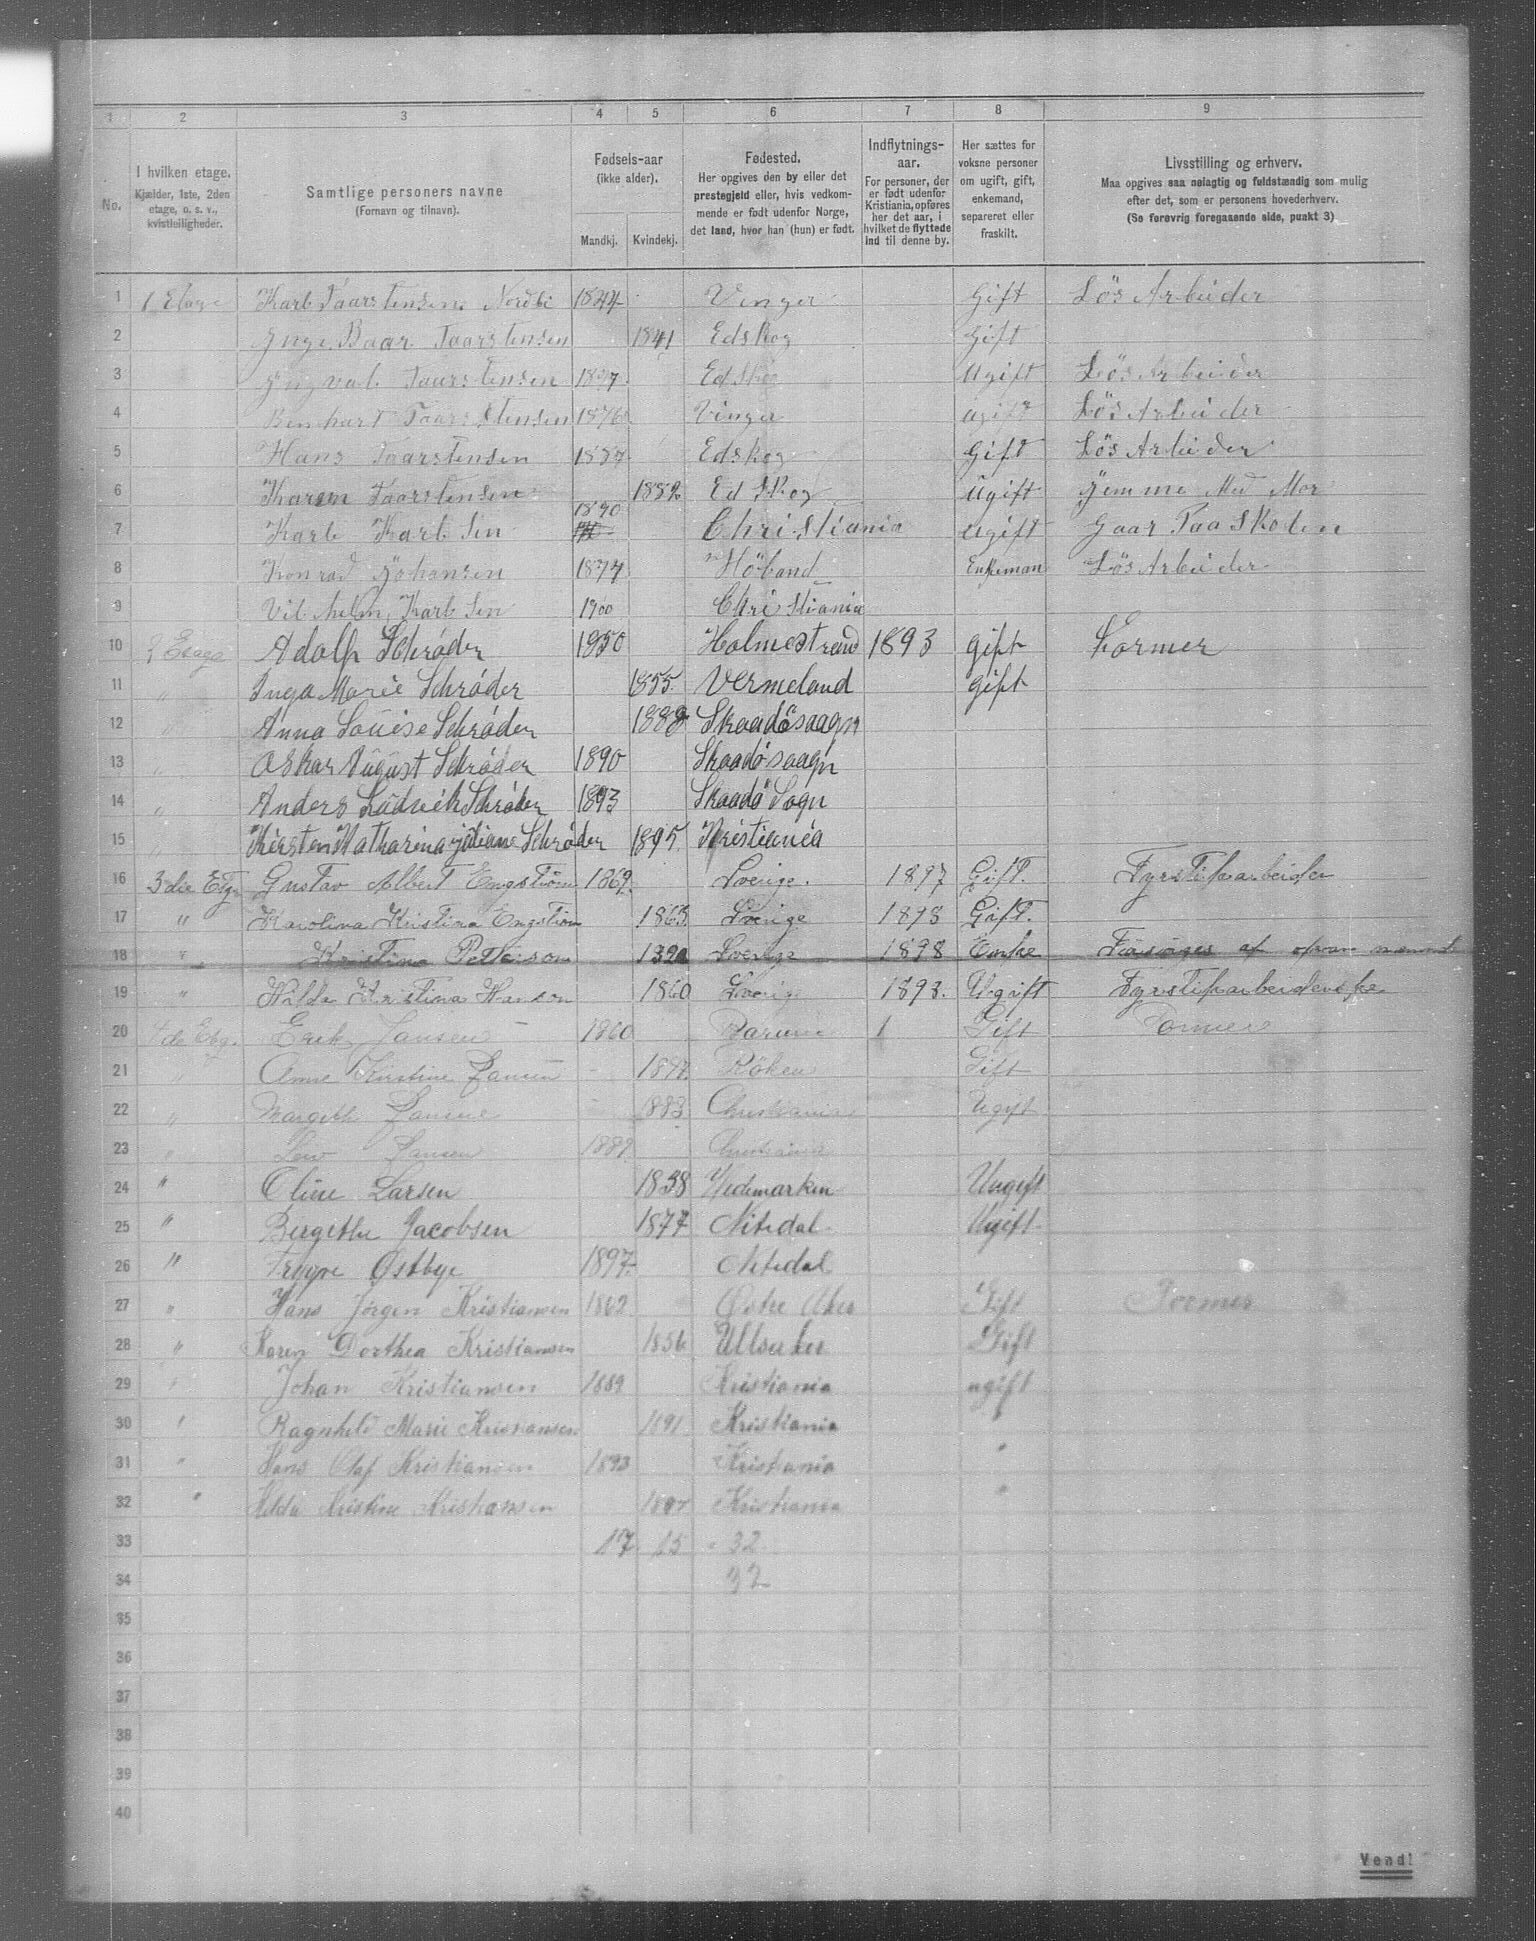 1 2 3 4 5 6 7 8 9
No.
I hvilken etage.
Kjælder, 1ste, 2den
etage, o. s. v.,
kvistleiligheder.
Samtlige personers navne
(Fornavn og tilnavn).
Fødsels-aar
(ikke alder).
Mandkj. Kvindekj.
Fødested.
Her opgives den by eller det
prestegjeld eller, hvis vedkom-
mende er født udenfor Norge,
det land, hvor han (hun) er født.
Indflytnings-
aar.
For personer, der
er født udenfor
Kristiania, opføres
her det aar, i
hvilket de flyttede
ind til denne by.
Her sættes for
voksne personer
om ugift, gift,
enkemand,
separeret eller
fraskilt.
Livsstilling og erhverv.
Maa opgives saa nøiagtig og fuldstændig som mulig
efter det, som er personens hovederhverv.
(Se forøvrig foregaaende side, punkt 3)
1 1 Etage Karl Taarstensen Nordbi 1844 Vinger Gift Lös Arbeider
2 Inge Baar Taarstensen 1841 Edskog Gift
3 Taarstensen Edskog Ugift Lös Arbeider
4 Taarstensen 1876 Vinger ugift Lös Arbeider
5 Hans Taarstensen Edskog Gift Lös Arbeider
6 Karen Taarstensen Ed Skog Ugift Med Mor
7 Karl Karl Sen 1890 Christiania ugift Gaar Paa Skolen
8 Konrad Johansen 1874 Enkeman Lös Arbeider
9 Vilhelm Karl Sen 1900 Christiania
10 2 Etage Adolf Schrøder 1850 Holmestrand 1893 gift Former
11 " Inga Marie Schrøder 1855 Vermeland gift
12 " Anna Louise Schrøder 1888 Skaadösaagn
13 " Oskar August Schrøder 1890 Skaadösaagn
14 " Anders Ludvik Schrøder 1893 Skaadö Sogn
15 " Kirsten Katharina Juliane Schrøder 1895 Kristiania
16 3die Etg Gustav Albert Engström 1869 Sverige. 1897 Gift. Fyrstikarbeider
17 " Karolina Kristina Engström 1863 Sverige 1898 Gift.
18 " Kristina Petterson 1820 Sverige 1898 Enke Forsörges af
19 " Hilda Kristina Hanson 1860 Sverige 1898. Ugift Fyrstikarbeiderske
20 4de Etg. Erik Jansen 1860 Bærum 1 Gift Former
21 " Anne Kristine Jansen Röken Gift
22 " Margith Jansen 1883 Christiania Ugift
23 " Jansen 1889 Christiania
24 " Oline Larsen 1858 Hedemarken Ungift
25 " Bergethe Jacobsen 1877 Nitedal Ugift
26 " Trygve Østbye 1897 Nitedal
27 " Hans Jørgen Kristiansen 1862 Østre Aker Gift Former
28 " Karen Dorthea Kristiansen 1856 Ullsaker Gift
29 " Johan Kristiansen 1889 Kristiania ugift
30 " Ragnhild Marie Kristiansen 1891 Kristiania "
31 " Hans Olaf Kristiansen 1893 Kristiania "
32 " Hilda Kristine Kristiansen 1897 Kristiania "
33 17 15 32
34 32
35
36
37
38
39
40
Vend!